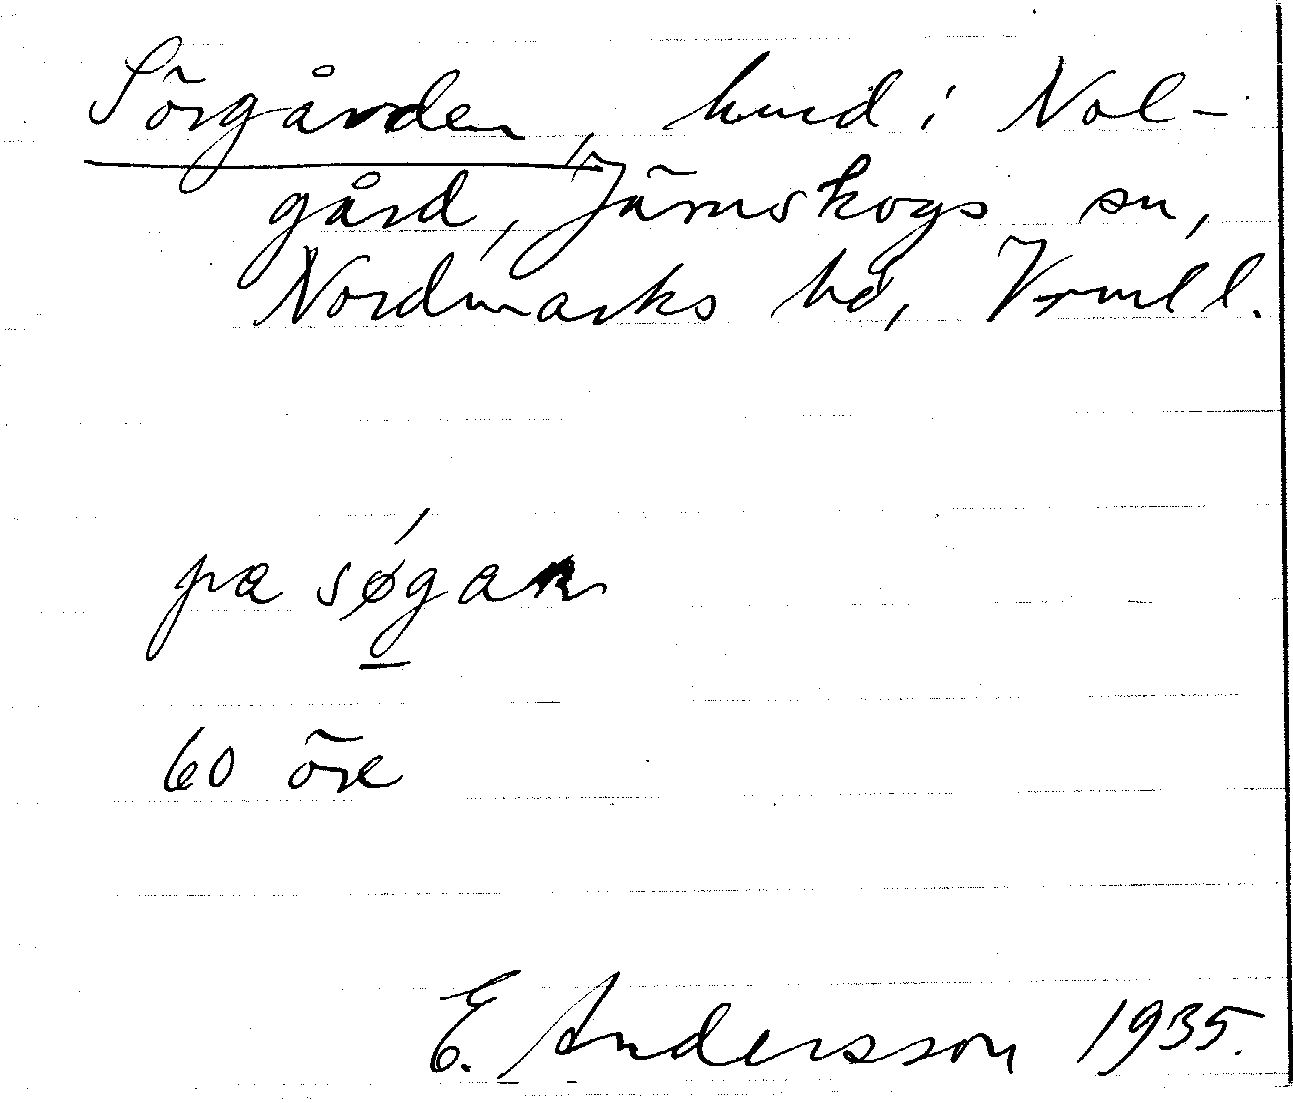 Sörgården, hmd i Nol-
gård, Järnskogs sn,
Nordmarks hd, Vrml l.
pa søgan
60 öre
E. Andersson 1935.